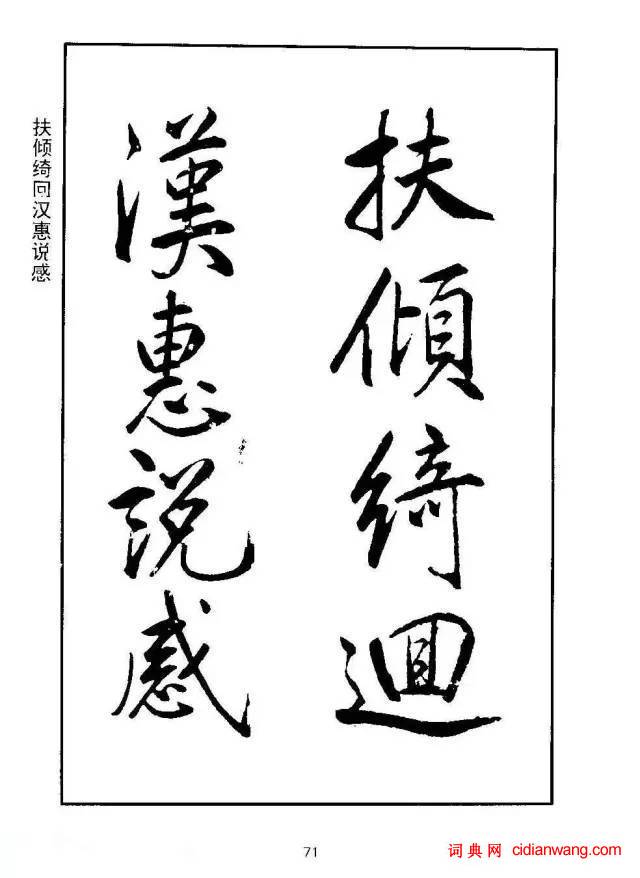 扶傾綺迴
漢惠說感
扶倾绮回汉惠说感
71
词典网 cidianwang.com